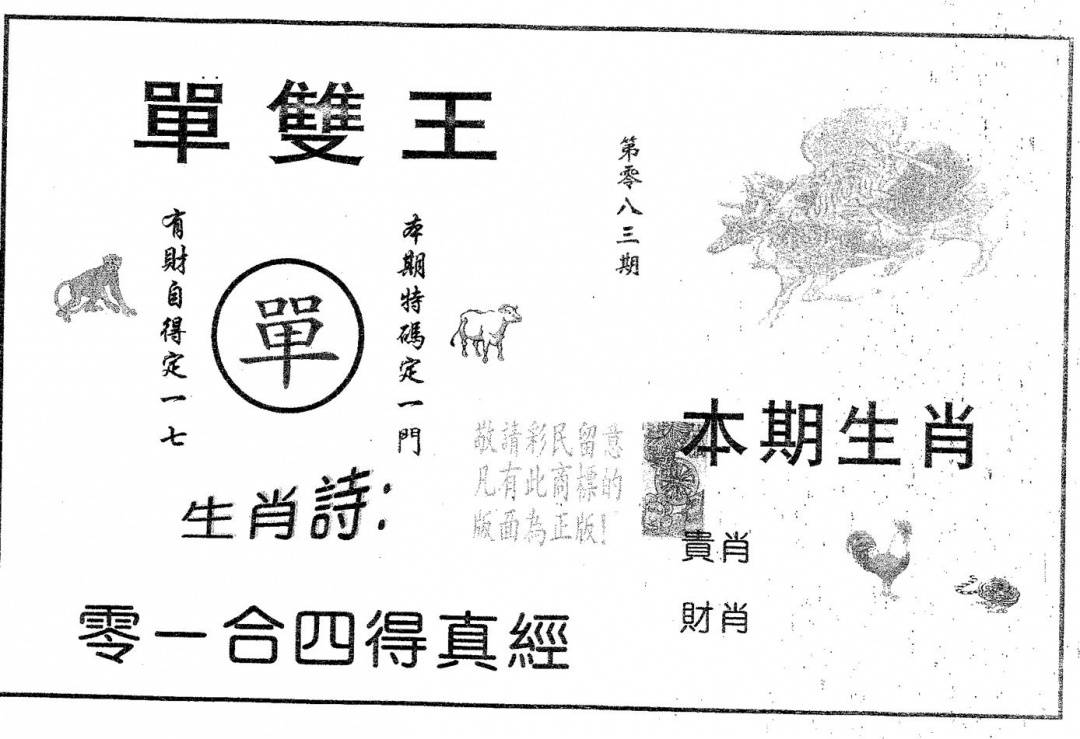 單雙王
第零八三期
本期特碼定一門
單
有財自得定一七
敬請彩民留意
凡有此商標的
版面為正版!
本期生肖
生肖詩:
貴肖
財肖
零一合四得真經